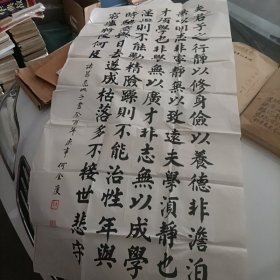 夫君子之行靜以修身儉以養德非澹泊
無以明志非寧靜無以致遠夫學湏靜也
才湏學也非學無以廣才非志無以成學
慢則不能勵精險躁則不能治性年與
時馳意與日去遂成枯落多不接世悲守
窮廬將復何及
諸葛亮誡子書 何金